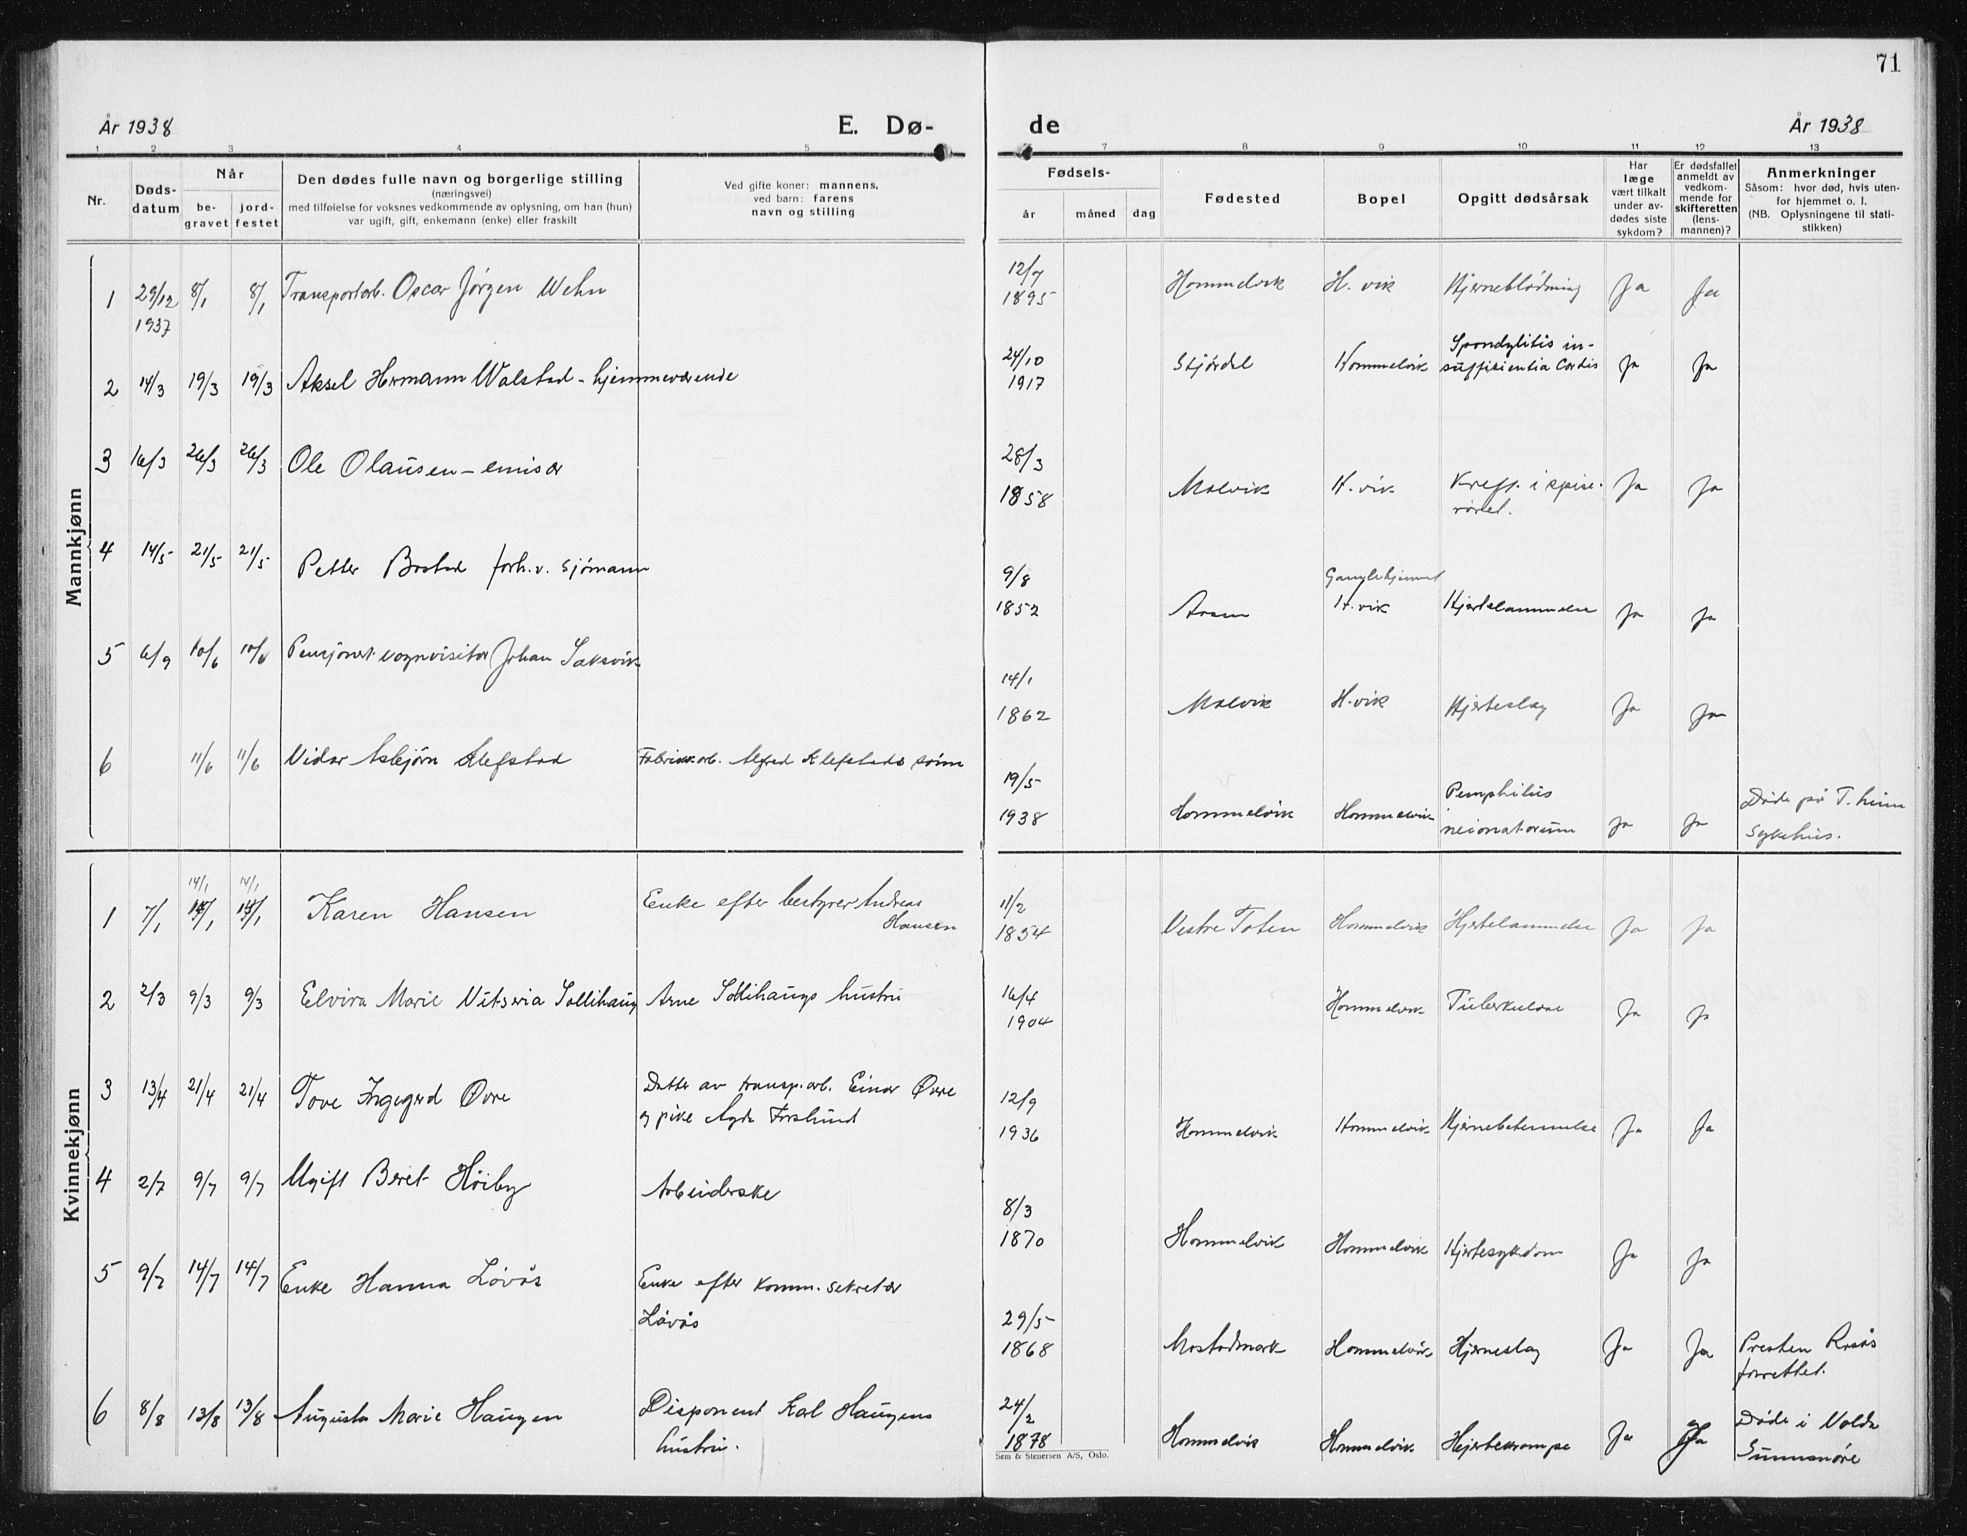 71
År 1938
E. Dø-
de
År 1938
1 2 3 3 4 5
7 8 9 10 11 12 13
Nr.
Døds-
datum
Når
be-
gravet
jord-
festet
Den dødes fulle navn og borgerlige stilling
(næringsvei)
med tilføielse for voksnes vedkommende av oplysning, om han (hun)
var ugift, gift, enkemann (enke) eller fraskilt
Ved gifte koner: mannens,
ved barn: farens
navn og stilling
Fødsels-
år måned dag
Fødested
Bopel
Opgitt dødsårsak
Har
læge
vært tilkalt
under av-
dødes siste
sykdom?
Er dødsfallet
anmeldt av
vedkom-
mende for
skifteretten
(lens-
mannen)?
Anmerkninger
Såsom: hvor død, hvis uten-
for hjemmet o. l.
(NB. Oplysningene til stati-
stikken)
Mannkjønn
1 29/12 1937 8/1 8/1 Transportarb. Oscar Jørgen Wehn
12/7 1895 Hommelvik H. vik Hjerneblødning Ja Ja
2 14/3 19/3 19/3 Aksel Hermann Walstad - hjemmeværende
24/10 1917 Stjørdal Hommelvik Spondylitis in-
suffisientia Cordis Ja Ja
3 16/3 26/3 26/3 Ole Olausen - emisær
28/3 1858 Malvik H. vik Kreft i spise-
røret. Ja Ja
4 14/5 21/5 21/5 Petter Bostad forh.v. sjømann
9/8 1852 Gamlehjemmet
H. vik Hjertelammelse Ja Ja
5 6/9 10/6 10/6 Pensjonert vognvisitør Johan Saksvik
14/1 1862 Malvik H. vik Hjerteslag Ja Ja
6 11/6 11/6 Vidar Asbjørn Klefstad Fabrikkarb. Alfred Klefstads sønn
19/5 1938 Hommelvik Hommelvik Pemphihus
neionatorum Ja Ja Døde på T.heim
Sykehus.
Kvinnekjønn
1 7/1 14/1 14/1 Karen Hansen Enke efter bestyrer Andreas
Hansen
11/2 1854 Vestre Toten Hommelvik Hjertelammelse Ja Ja
2 2/3 9/3 9/3 Elvira Marie Sollihaug Arne Sollihaugs hustru
16/4 1904 Hommelvik Tuberkulose Ja Ja
3 13/4 21/4 21/4 Tove Ingegerd Øvre Datter av transp.arb. Einar Øvre
og pike Forslund
12/9 1936 Hommelvik Hommelvik Hjernebetennelse Ja Ja
4 2/7 9/7 9/7 Ugift Beret Høiby Arbeiderske
8/3 1870 Hommelvik Hommelvik Hjertesykdom Ja Ja
5 9/7 14/7 14/7 Enke Hanna Løvås Enke efter komm.sekretær
Løvås
29/5 1868 Mostadmark Hommelvik Hjerneslag Ja Ja Presten
forrettet.
6 8/8 13/8 13/8 Augusta Marie Haugen Disponent Karl Haugens
hustru.
24/2 1878 Hommelvik Hommelvik Hjertekrampe Ja Ja Døde i Volda
Sunnmøre
Sem & Stenersen A/S, Oslo.